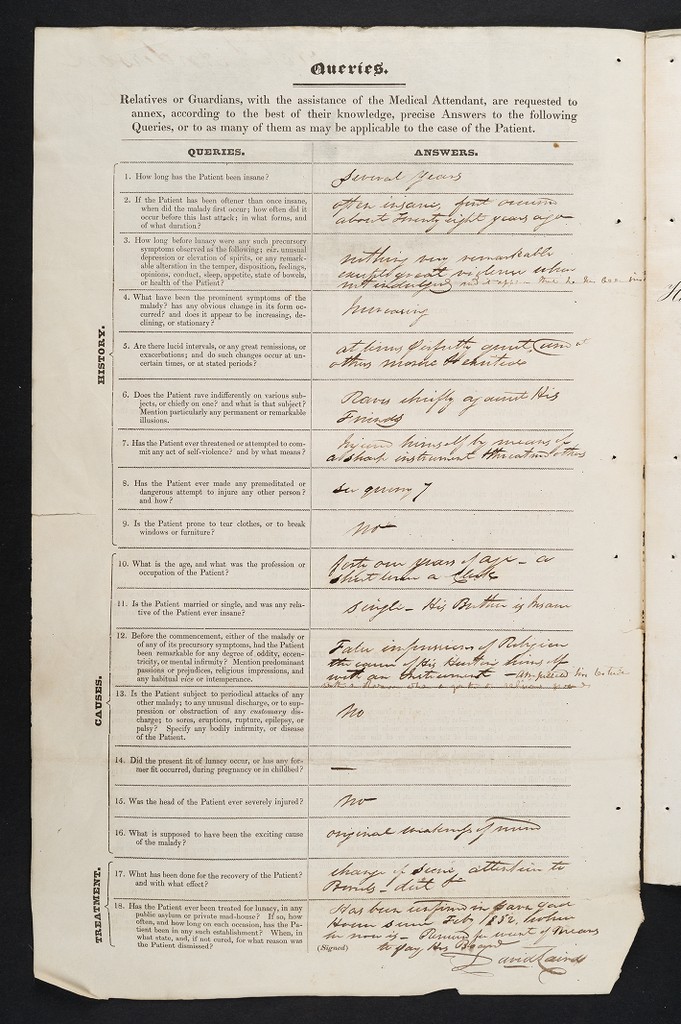 Queries.
Relatives or Guardians, with the assistance of the Medical Attendant, are requested to
annex, according to the best of their knowledge, precise Answers to the following
Queries, or to as many of them as may be applicable to the case of the Patient.
QUERIES.
ANSWERS.
HISTORY.
1. How long has the Patient been insane?
Several years
2. If the Patient has been oftener than once insane,
when did the malady first occur; how often did it
occur before this last attack: in what forms, and
of what duration?
often insane, first
about Twenty eight years ago
3. How long before lunacy were any such precursory
symptoms observed as the following; viz. unusual
depression or elevation of spirits, or any remark-
able alteration in the temper, disposition, feelings,
opinions, conduct, sleep, appetite, state of bowels,
or health of the Patient?
nothing very remarkable
except great violence when
not indulged
4. What have been the prominent symptoms of the
malady? has any obvious change in its form oc-
curred? and does it appear to be increasing, de-
clining, or stationary?
Increasing
5. Are there lucid intervals, or any great remissions, or
exacerbations; and do such changes occur at un-
certain times, or at stated periods?
at times Perfectly quiet, and at
others more Excited
6. Does the Patient rave indifferently on various sub-
jects, or chiefly on one? and what is that subject?
Mention particularly any permanent or remarkable
illusions.
Raves chiefly against His
Friends
7. Has the Patient ever threatened or attempted to com-
mit any act of self-violence? and by what means?
Injured himself by means of
a sharp instrument threatened others
8. Has the Patient ever made any premeditated or
dangerous attempt to injure any other person?
and how?
see query 7
9. Is the Patient prone to tear clothes, or to break
windows or furniture?
No
CAUSES.
10. What is the age, and what was the profession or
occupation of the Patient?
forty one years of age – a
short time a Clerk
11. Is the Patient married or single, and was any rela-
tive of the Patient ever insane?
Single – His Brother is Insane
12. Before the commencement, either of the malady or
of any of its precursory symptoms, had the Patient
been remarkable for any degree of oddity, eccen-
tricity, or mental infirmity? Mention predominant
passions or prejudices, religious impressions, and
any habitual vice or intemperance.
False impressions of Religion
the cause of His Hurting himself
with an instrument –
13. Is the Patient subject to periodical attacks of any
other malady; to any unusual discharge, or to sup-
pression or obstruction of any customary dis-
charge; to sores, eruptions, rupture, epilepsy, or
palsy? Specify any bodily infirmity, or disease
of the Patient.
No
14. Did the present fit of lunacy occur, or has any for-
mer fit occurred, during pregnancy or in childbed?
—
15. Was the head of the Patient ever severely injured?
No
16. What is supposed to have been the exciting cause
of the malady?
original weakness of mind
TREATMENT.
17. What has been done for the recovery of the Patient?
and with what effect?
change of scene, attention to
Bowels – diet &c
18. Has the Patient ever been treated for lunacy, in any
public asylum or private mad-house? If so, how
often, and how long on each occasion, has the Pa-
tient been in any such establishment? When, in
what state, and, if not cured, for what reason was
the Patient dismissed?
Has been confined in
House since Feby 1832, where
he now is – Removed for want of Means
to pay His Board
(Signed)
David Laird